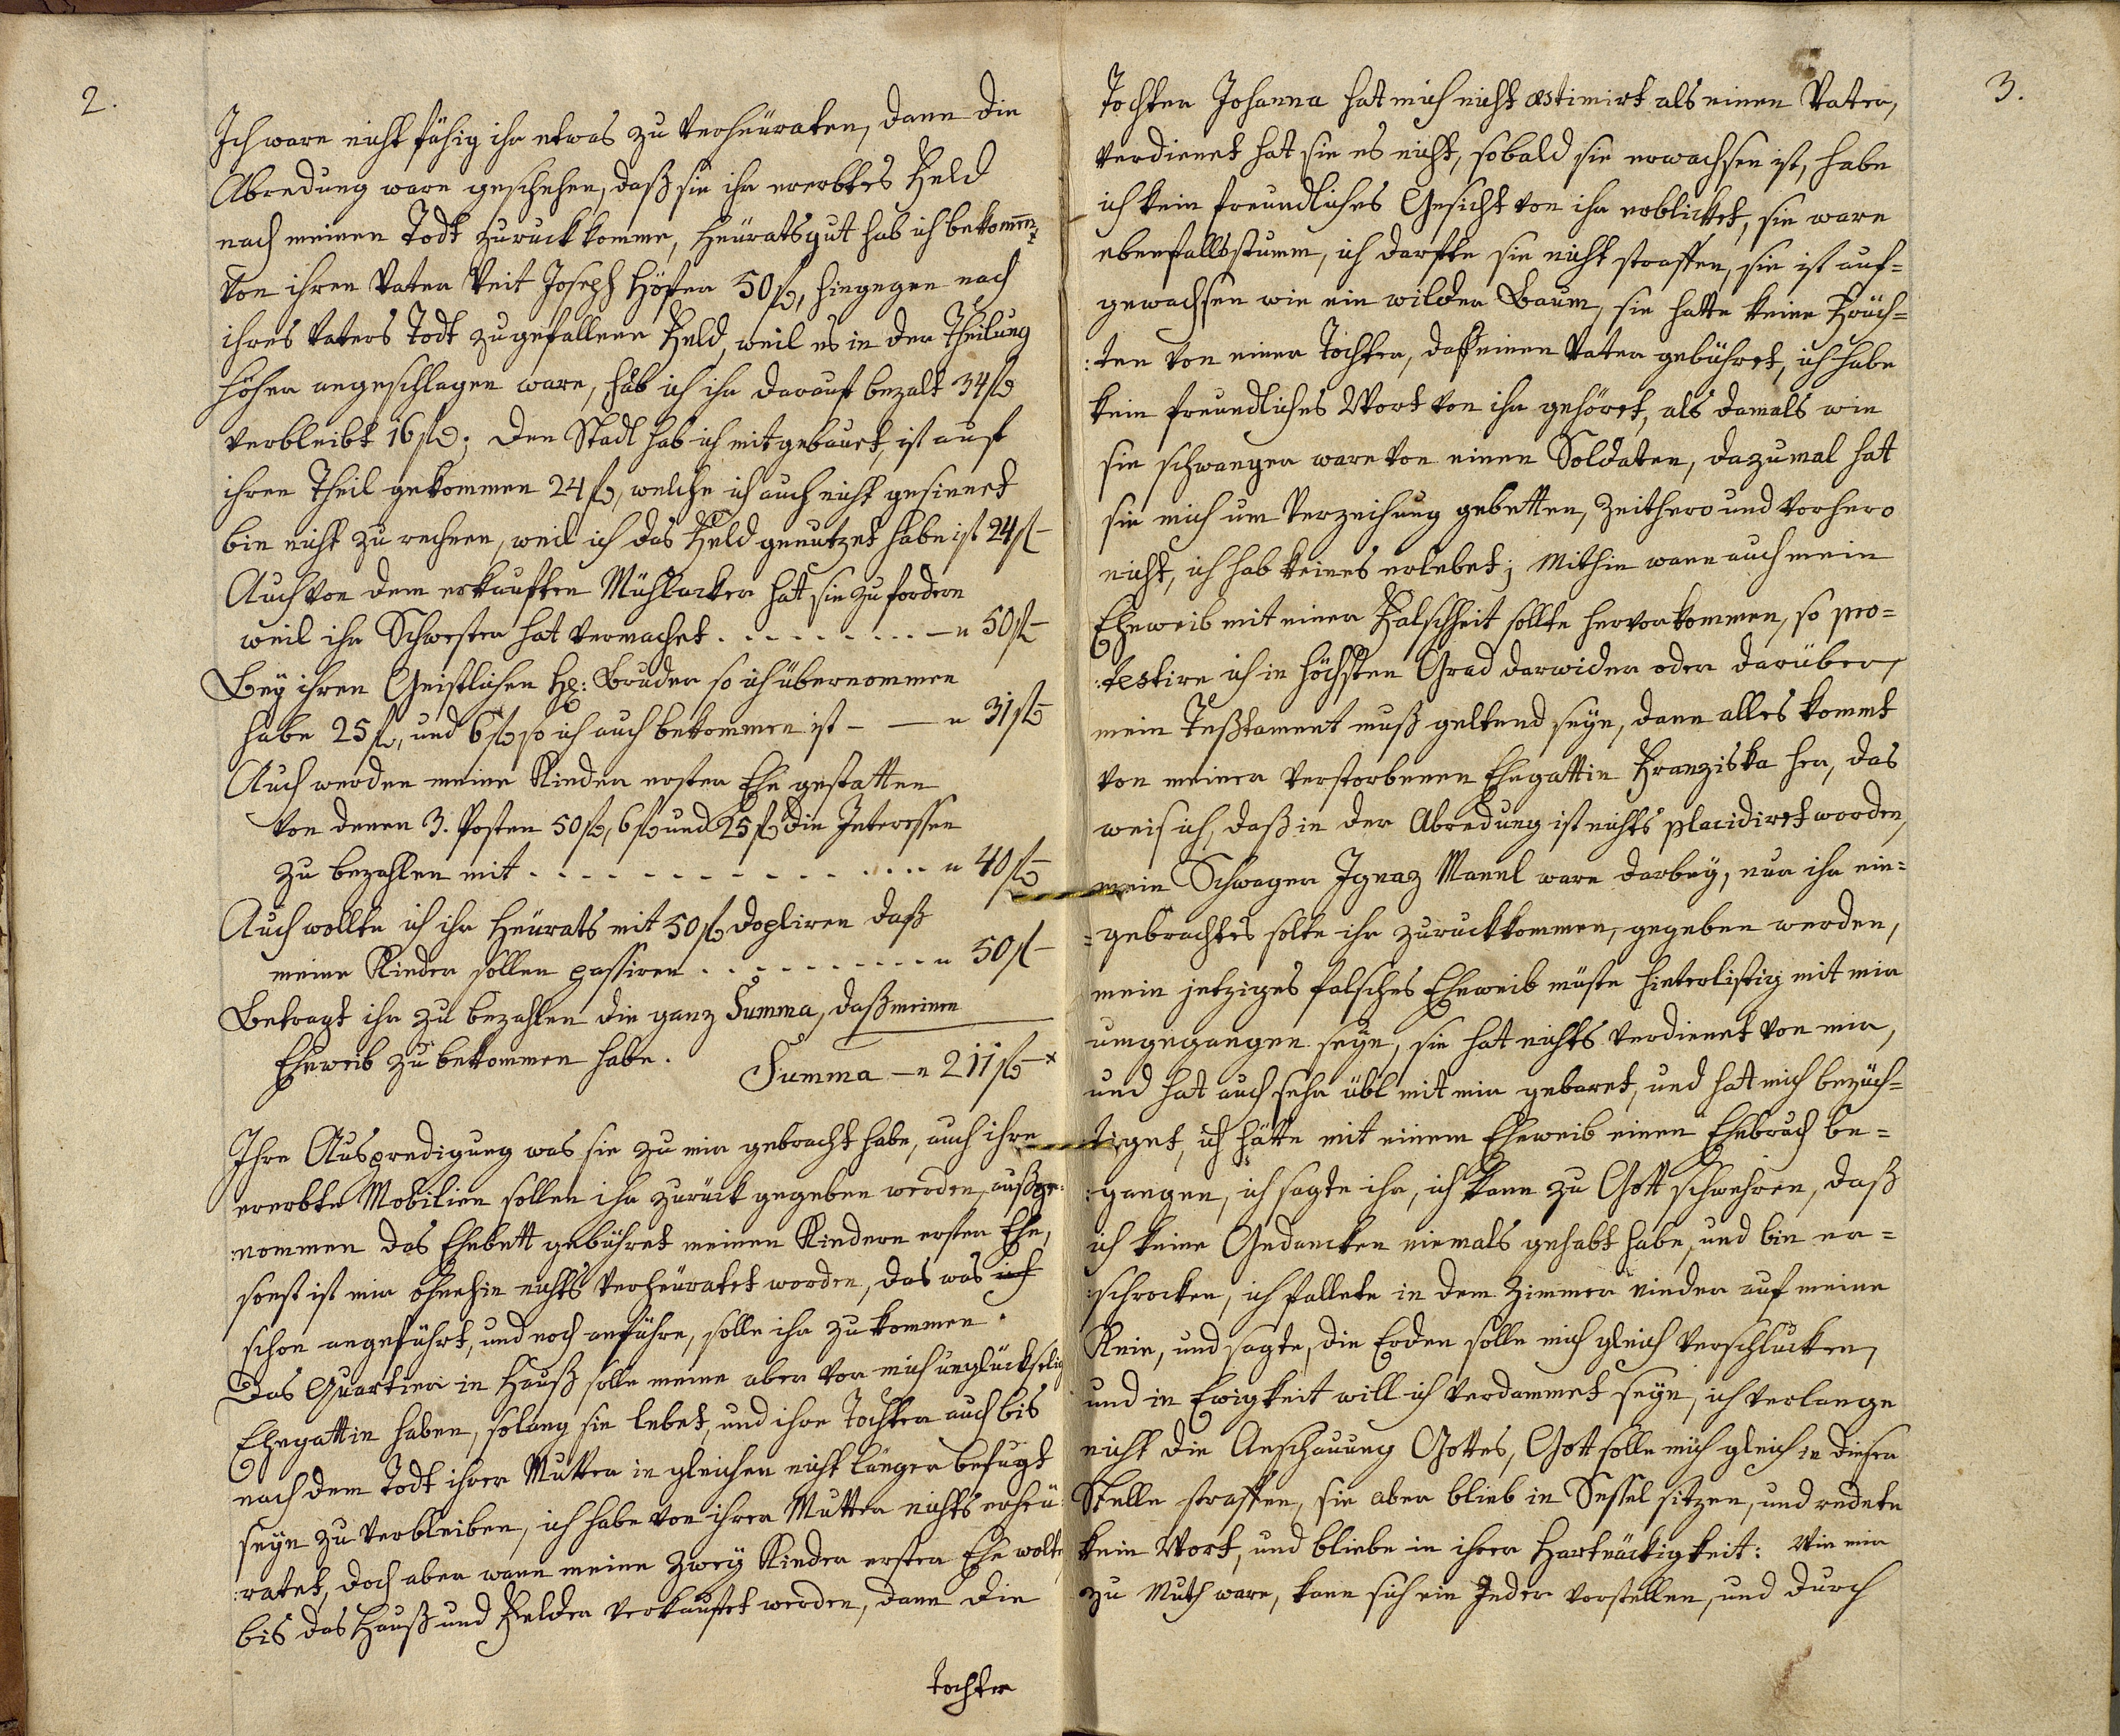 2.
Ich ware nicht fähig ihr etwas zu verheüraten, dann die
Abredung ware geschehen, daß sie ihr ererbtes Feld
nach meinen Todt zuruck komme, Heüratsgut hab ich bekomm̅:
von ihren Vater Veit Joseph Höfer 50 fl, hingegen nach
ihres Vaters Todt zugefallene Feld, weil es in der Theilung
höher angeschlagen ware, hab ich ihr darauf bezalt 34 fl
verbleibt 16 fl; Den Stadl hab ich mitgebauet, ist auf
ihren Theil gekommen 24 fl, welche ich auch nicht gesinnet
bin nicht zu rechnen, weil ich das Feld genutzet habe ist 24 fl –
Auch von dem erkauften Mühlacker hat sie zu fordern
weil ihr Schwester hat vermachet . . . . . . . . . — " 50 fl –
Bey ihren Geistlichen H: Bruder so ich übernommen
habe 25 fl, und 6 fl so ich auch bekommen ist – — " 31 fl –
Auch werden meine Kinder erster Ehe gestatten
von denen 3. Posten 50 fl, 6 fl und 25 fl die Interessen
zu bezahlen mit . . . . . . . . . . . . . . . " 40 fl –
Auch wollte ich ihr Heürats mit 50 fl dopliren daß
meine Kinder sollen passiren . . . . . . . . . . " 50 fl –
Betragt ihr zu bezahlen die ganz Summa, daß meinen
Eheweib zu bekommen habe. Summa — " 211 fl – x
Ihre Auspredigung was sie zu mir gebracht habe, auch ihre
ererbte Mobilien sollen ihr zurück gegeben werden, außge:
:nommen das Ehebett gebühret meinen Kindern erster Ehe,
sonst ist mir ohnehin nichts verheüratet worden, das was ich
schon angeführt, und noch anführe, solle ihr zu kommen.
Das Quartier in Hauß solle meine aber vor mich unglückselig
Ehegattin haben, solang sie lebet, und ihre Tochter auch bis
nach dem Todt ihrer Mutter in gleichen nicht länger befugt
seyn zu verbleiben, ich habe von ihrer Mutter nichts erheü:
:ratet, doch aber wann meine zwey Kinder erster Ehe wolte
bis das Hauß und Felder verkauftet werden, dann die
Tochter
3.
Tochter Johanna hat mich nicht æstimirt als einen Vater,
verdienet hat sie es nicht, sobald sie erwachsen ist, habe
ich kein freundliches Gesicht von ihr erblicket, sie ware
ebenfalls stumm, ich darfte sie nicht straffen, sie ist auf=
gewachsen wie ein wilder Baum, sie hatte keine Früch=
:ten von einer Tochter, daß einen Vater gebühret, ich habe
kein freundliches Wort von ihr gehöret, als damals wie
sie schwanger ware von einen Soldaten, dazumal hat
sie mich um Verzeihung gebetten, Zeithero und vorhero
nicht, ich hab keines erlebet; Mithin wann auch mein
Eheweib mit einer Falschheit sollte hervorkommen, so pro=
:testire ich in höchsten Grad darwider oder darüber,
mein Teßtament muß geltend seyn, dann alles kommt
von meiner verstorbenen Ehegattin Franziska her, das
weis ich, daß in der Abredung ist nichts placidiret worden,
mein Schwager Ignaz Mannl ware darbey, nur ihr ein=
=gebrachtes solte ihr zuruckkommen, gegeben werden,
mein jetziges falsches Eheweib müste hinterlistig mit mir
umgegangen seyn, sie hat nichts verdienet von mir,
und hat auch sehr übl mit mir gebaret, und hat mich bezüch=
tiget, ich hätte mit einem Eheweib einen Ehebruch be=
:gangen, ich sagte ihr, ich kann zu Gott schwehren, daß
ich keine Gedancken niemals gehabt habe, und bin er=
:schrocken, ich fallete in dem Zimmer nieder auf meine
Knie, und sagte, die Erden solle mich gleich verschlucken,
und in Ewigkeit will ich verdammet seyn, ich verlange
nicht die Anschauung Gottes, Gott solle mich gleich in dieser
Stelle straffen, sie aber blieb in Sessel sitzen, und redete
kein Wort, und bliebe in ihrer Hartnäckigkeit: Wie mir
zu Muth ware, kann sich ein Jeder vorstellen, und durch